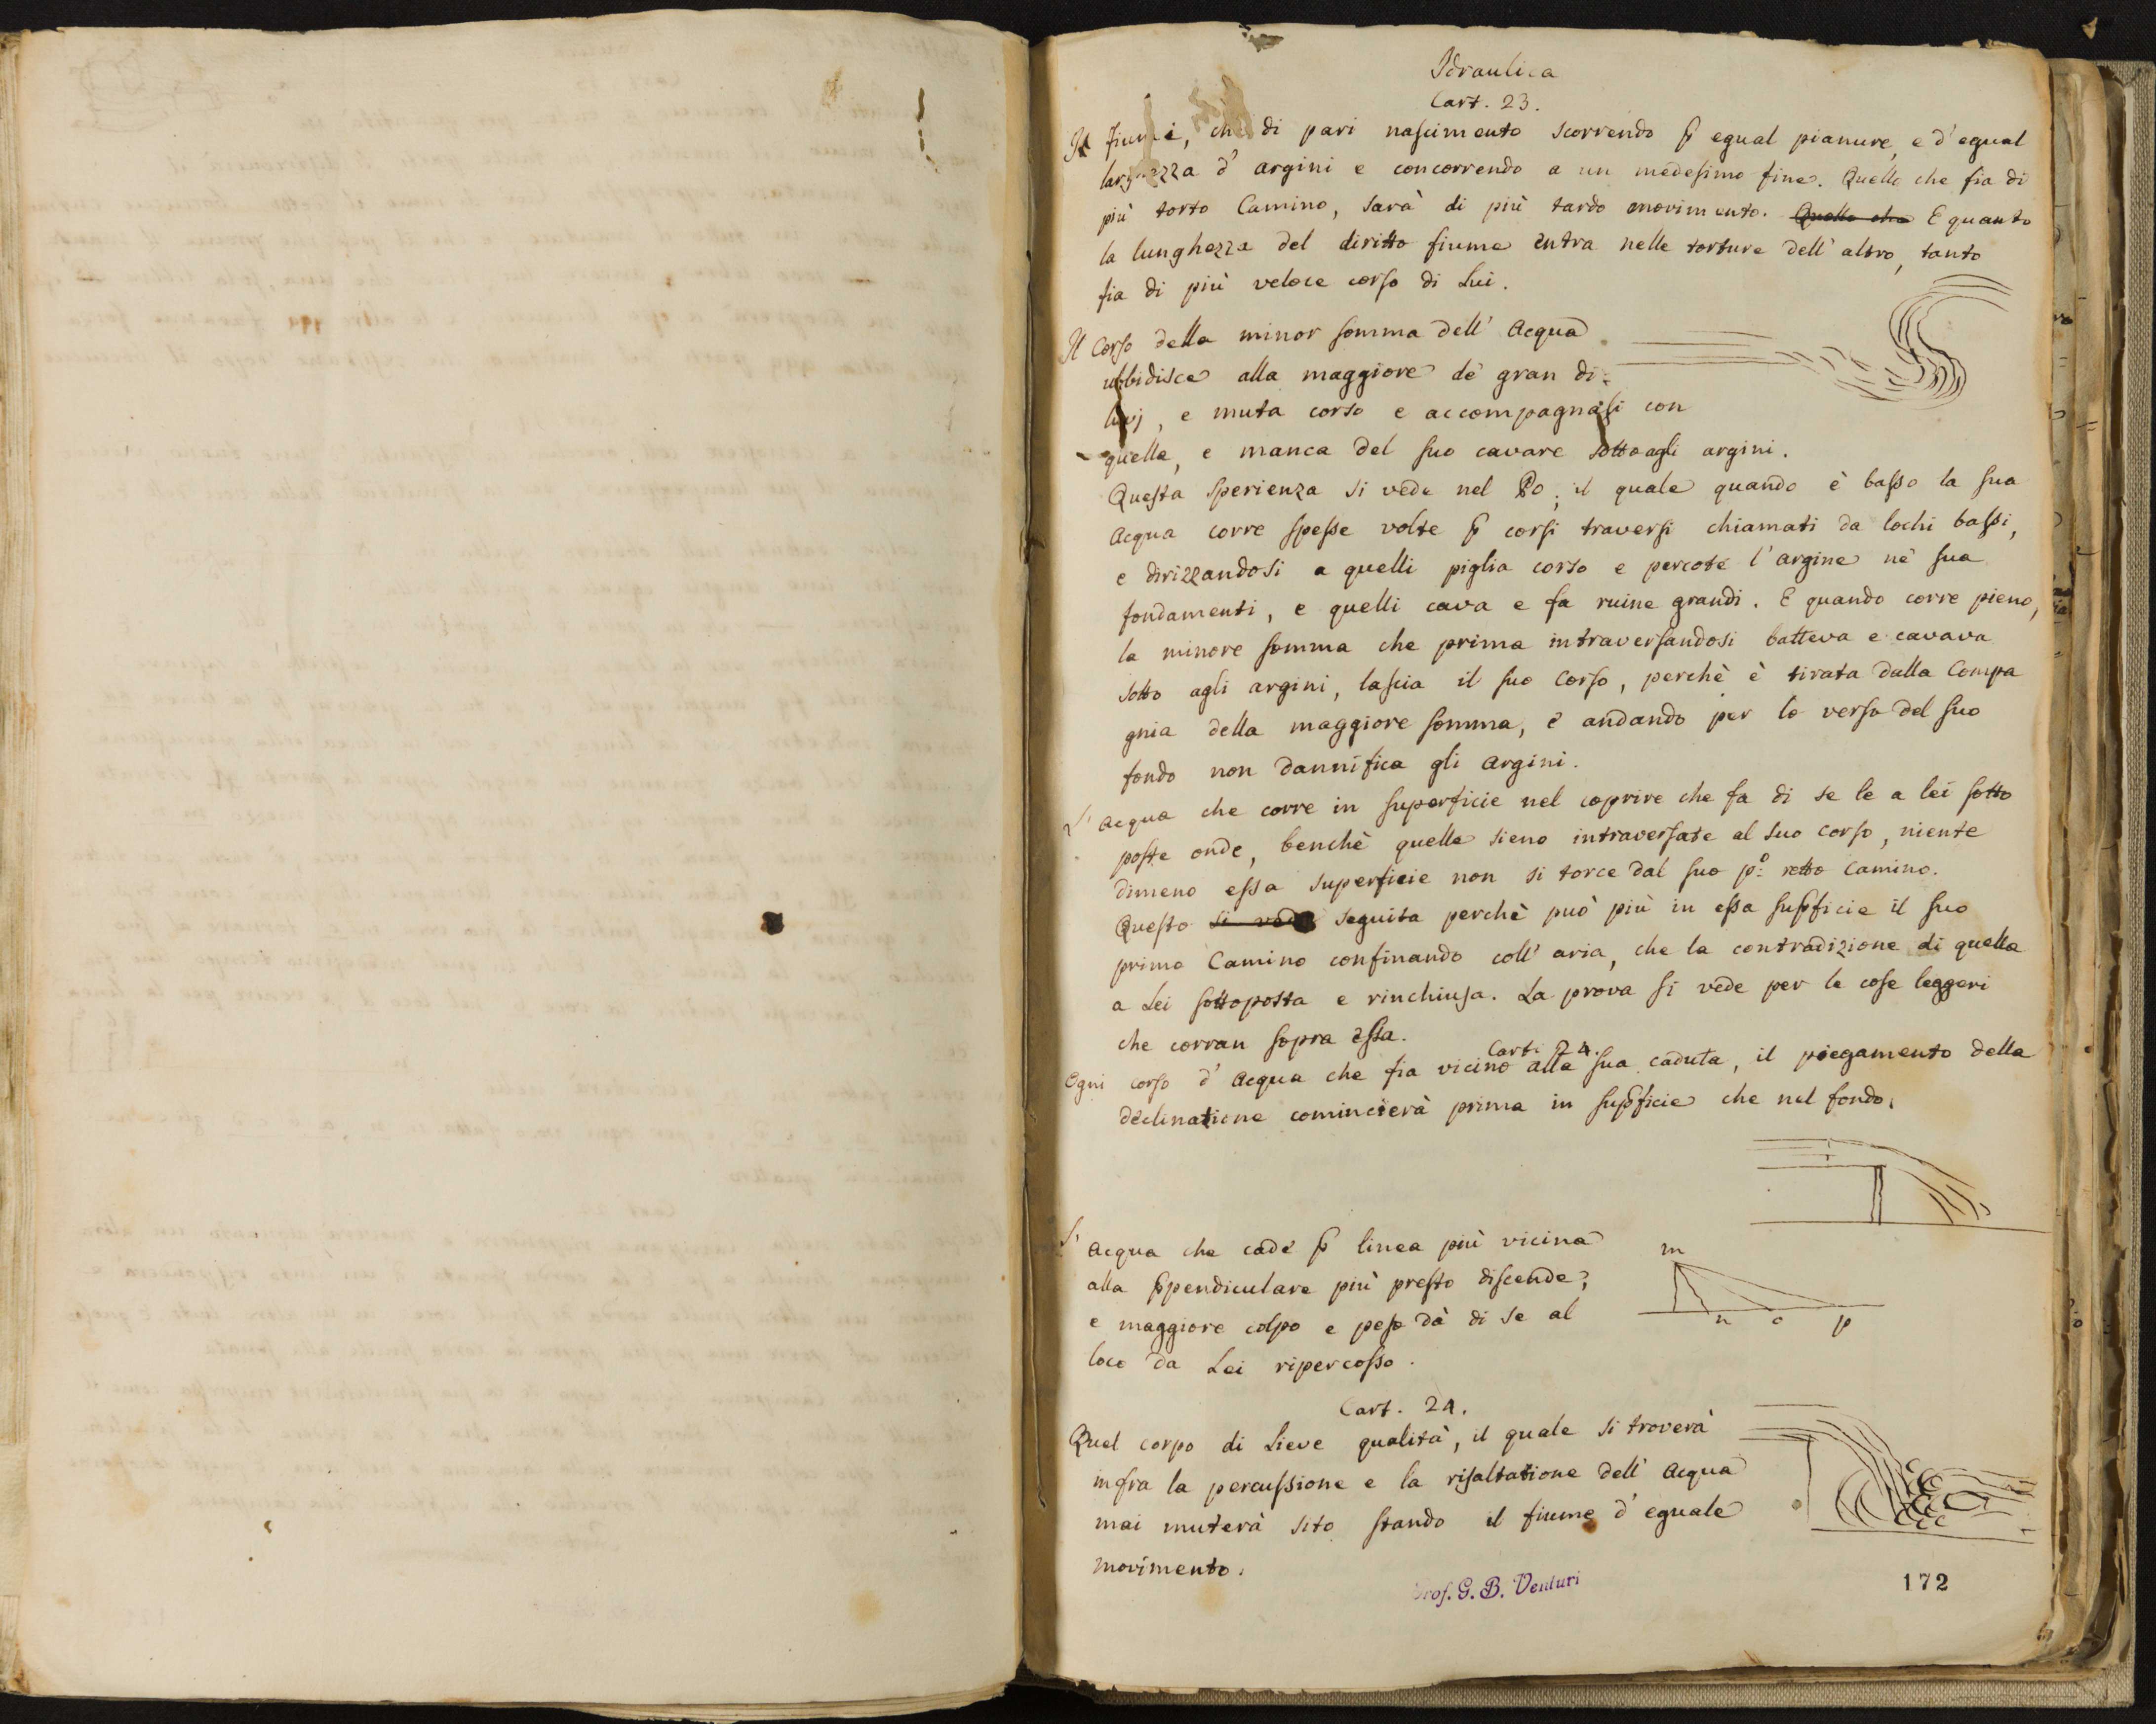 Idraulica
Cart. 23.
fiumi, che di pari nascimento scorrendo ꝑ egual pianure, e d'egual
larghezza d'argini e concorrendo a un medesimo fine. Quello che fia di
più torto Camino, sarà di più tardo movimento. Quello che E quanto
la lunghezza del diritto fiume entra nelle torture dell'altro, tanto
fia di più veloce corso di Lui.
Il Corso della minor somma dell'Acqua
ubbidisce alla maggiore de' gran di:
luvj, e muta corso e accompagnasi con
quella, e manca del suo cavare sotto agli argini.
Questa Sperienza si vede nel Po; il quale quando è basso la sua
Acqua corre spesse volte ꝑ corsi traversi chiamati da lochi bassi,
e dirizzandosi a quelli piglia corso e percote l'argine ne' sua
fondamenti, e quelli cava e fa ruine grandi. E quando corre pieno,
la minore somma che prima intraversandosi batteva e cavava
sotto agli argini, lascia il suo Corso, perchè è tirata dalla Compa
gnia della maggiore somma, e andando per lo verso del suo
fondo non dannifica gli Argini.
L'Acqua che corre in superficie nel coprire che fa di se le a lei sotto
poste onde, benchè quelle sieno intraversate al suo corso, niente
dimeno essa superficie non si torce dal suo pº: retto Camino.
Questo si vede seguita perchè può più in essa suꝑficie il suo
primo Camino confinando coll'aria, che la contradizione di quella
a Lei sottoposta e rinchiusa. La prova si vede per le cose leggeri
che corran sopra essa.
Cart. 24.
Ogni corso d'Acqua che fia vicino alla sua caduta, il piegamento della
declinatione comincierà prima in suꝑficie che nel fondo.
L'Acqua che cade ꝑ linea più vicina
alla ꝑpendiculare più presto discende,
e maggiore colpo e peso dà di se al
loco da Lei ripercosso.
m
n o p
Cart. 24.
Quel corpo di Lieve qualità, il quale si troverà
infra la percussione e la risaltatione dell'Acqua
mai muterà sito stando il fiume d'eguale
movimento.
Prof. G. B. Venturi
172